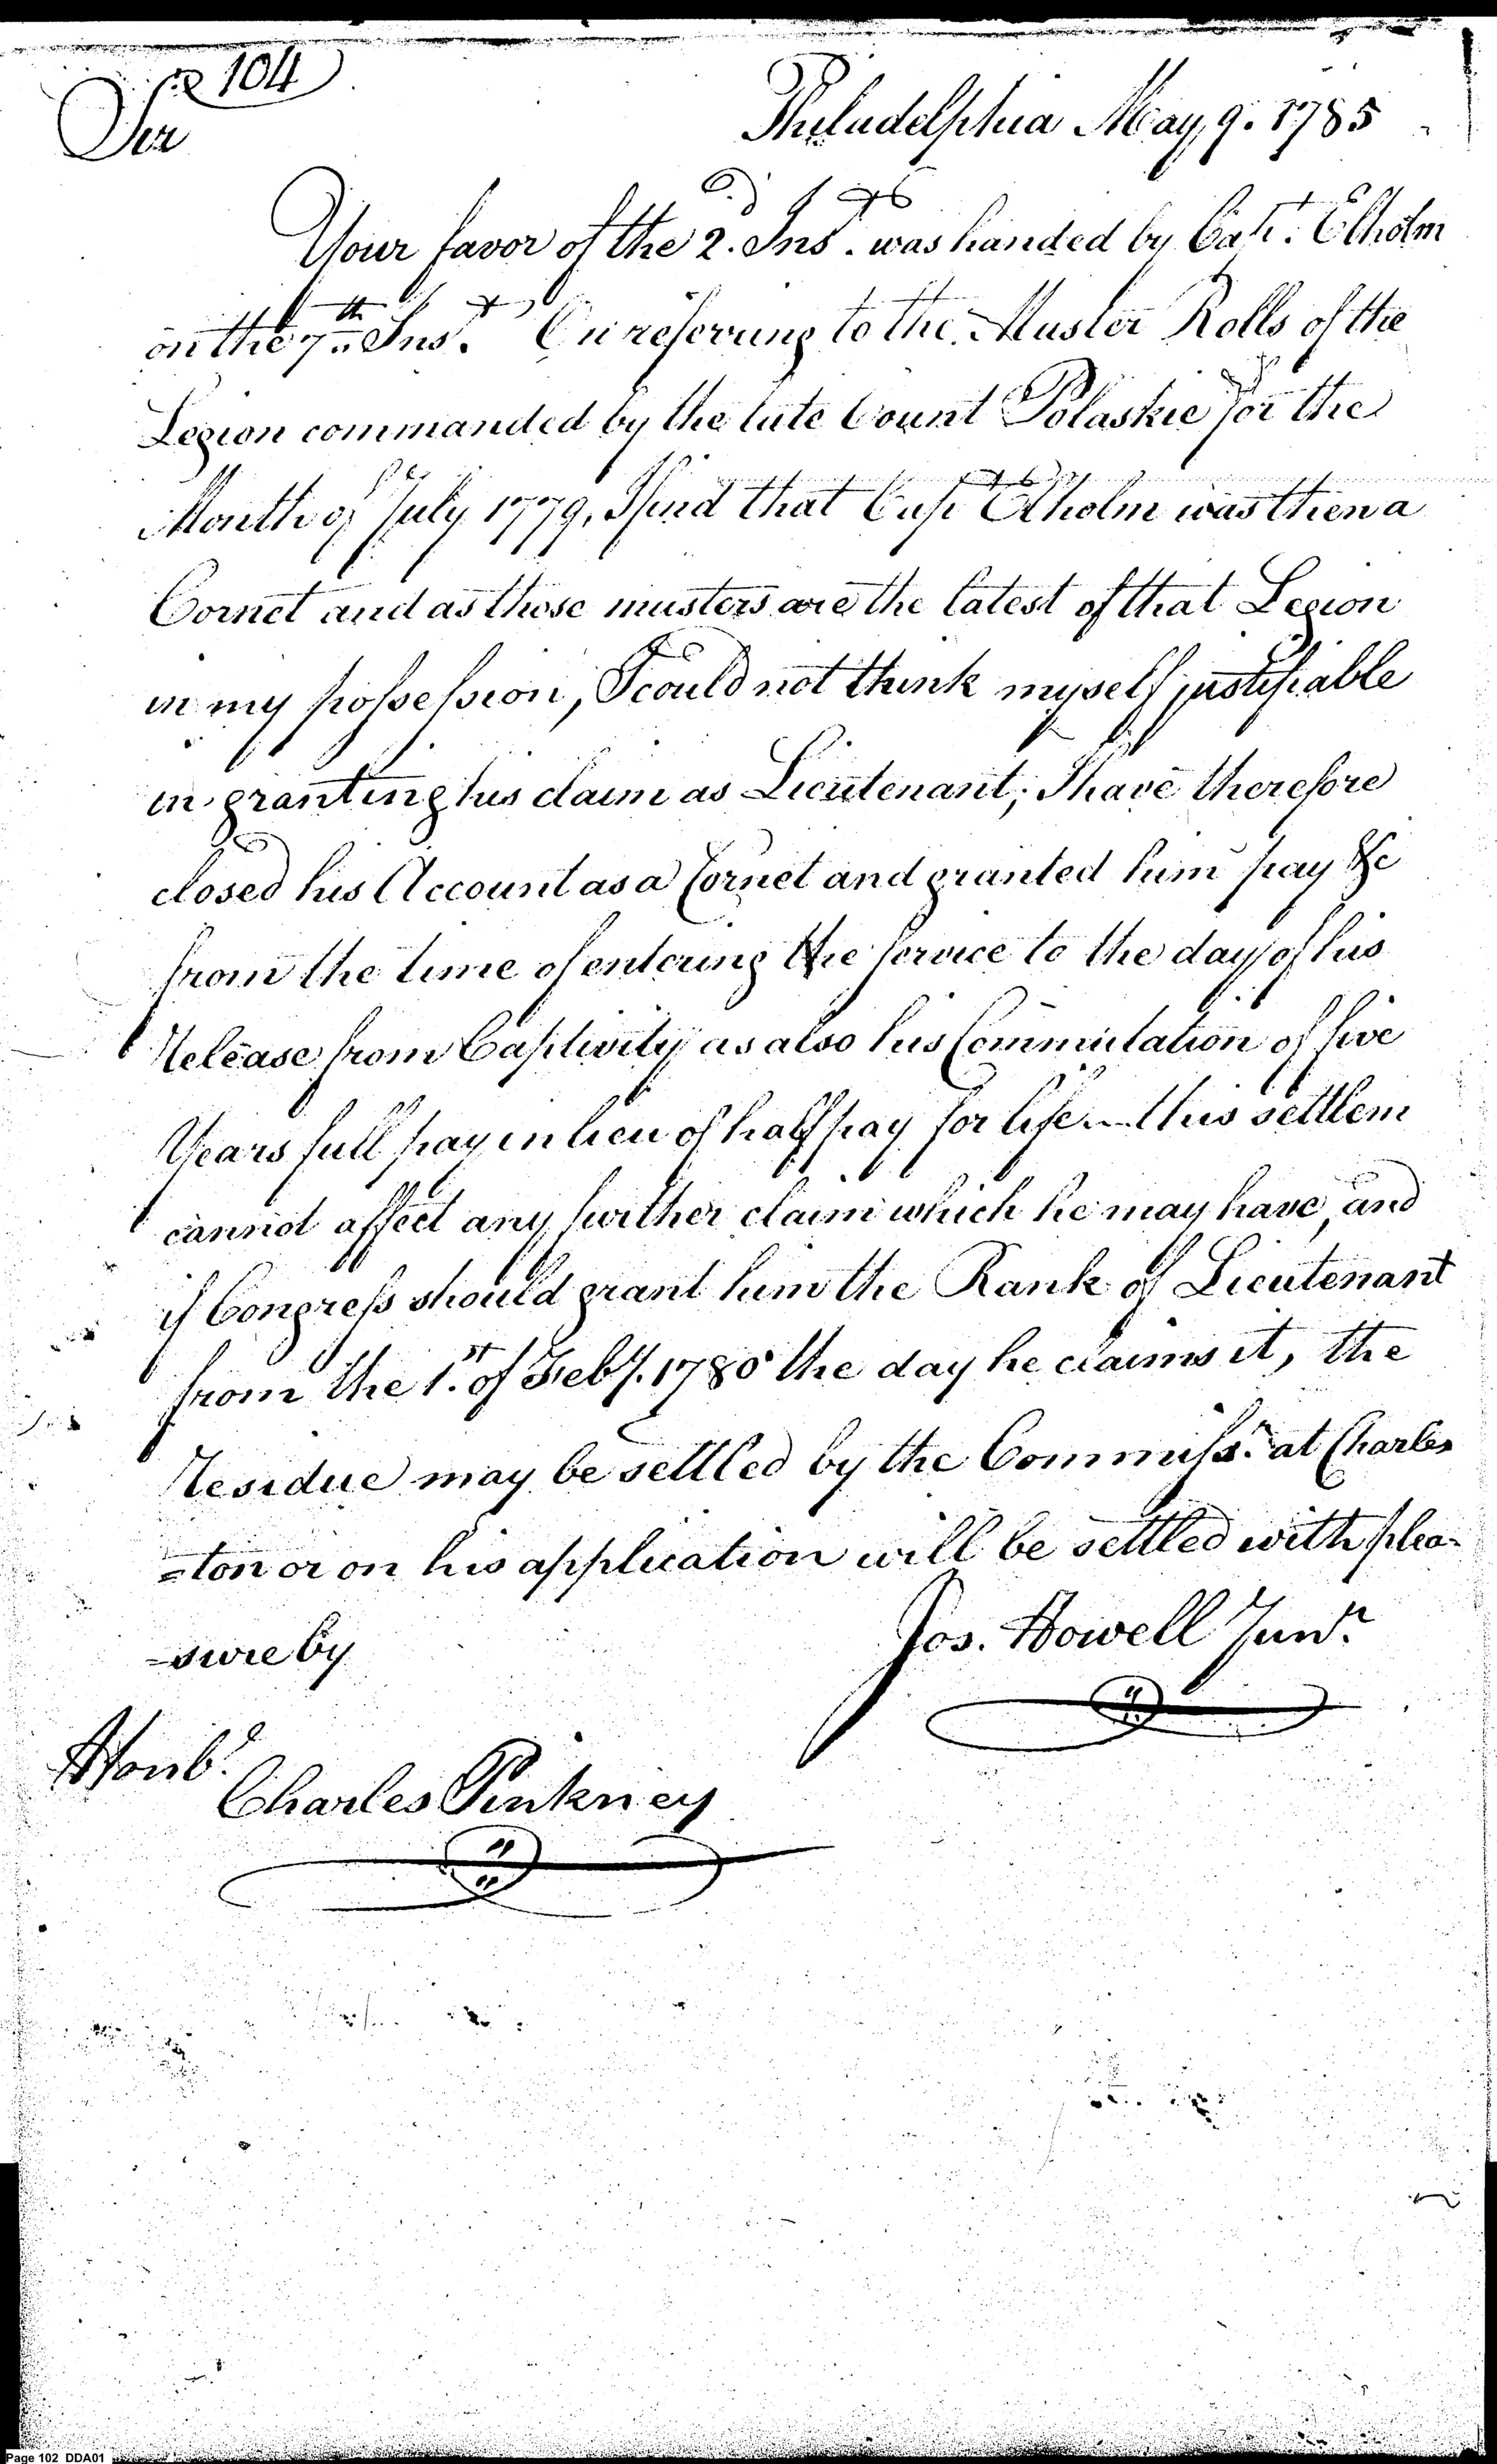 104
Sir
Philadelphia May 9. 1785
Your favor of the 2.d Inst. was handed by Capt. Elholm
on the 7th Inst. On referring to the Muster Rolls of the
Legion commanded by the late Count Polaskie for the
Month of July 1779, I find that Capt Elholm was then a
Cornet and as those musters are the latest of that Legion
in my possession, I could not think myself justifiable
in granting his claim as Lieutenant; I have therefore
closed his Account as a Cornet and granted him pay &c
from the time of entering the service to the day of his
Release from Captivity as also his Commutation of five
Years full pay in lieu of half pay for life — this settlem
cannot affect any further claim which he may have, and
if Congress should grant him the Rank of Lieutenant
from the 1.st of Feby. 1780 the day he claims it, the
Residue may be settled by the Commissr. at Charles
=ton or on his application will be settled with plea-
-sure by
Jos. Howell Junr.
Honbl.
Charles Pinkney
Page 102 DDA01